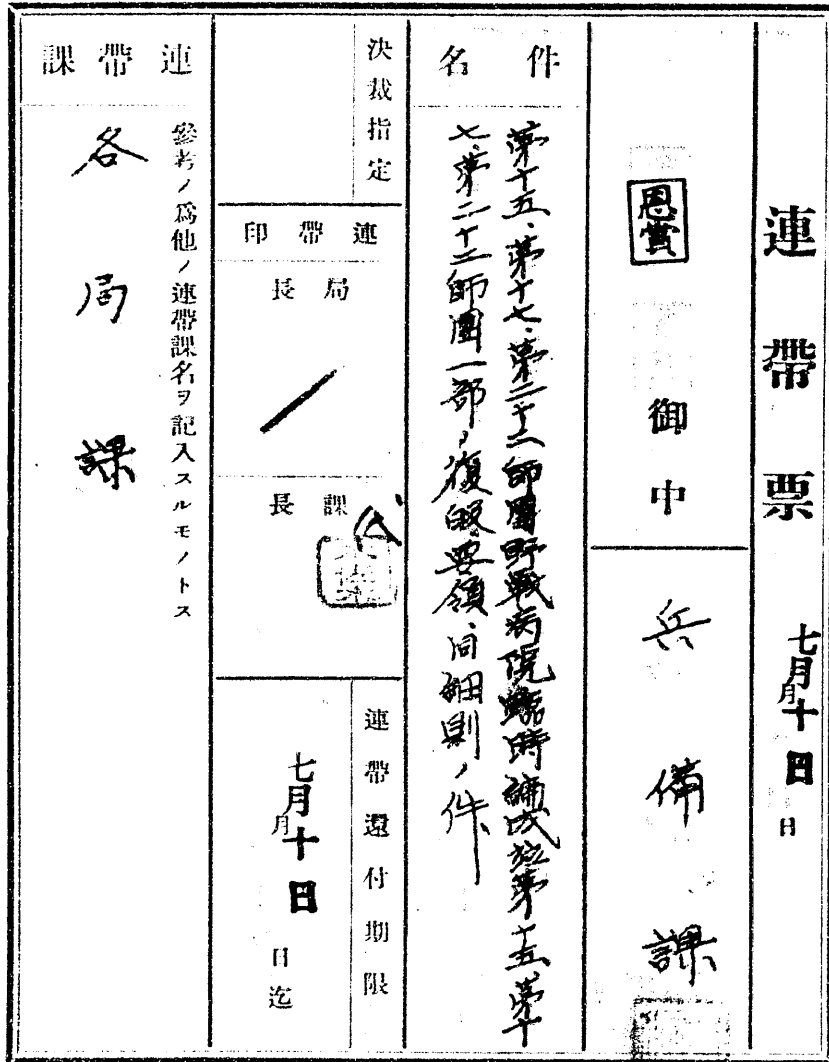 連帶票
七月十日
月 日
恩賞
御中
兵備課
件名
第十五、第十七、第二十二師團野戰病院臨時編成竝第十五、第十
七、第二十二師團一部ノ復歸要領、同細則ノ件
決裁指定
連帶印
局長
課長
連帶還付期限
七月十日
月 日迄
連帶課
參考ノ爲他ノ連帶課名ヲ記入スルモノトス
各局課